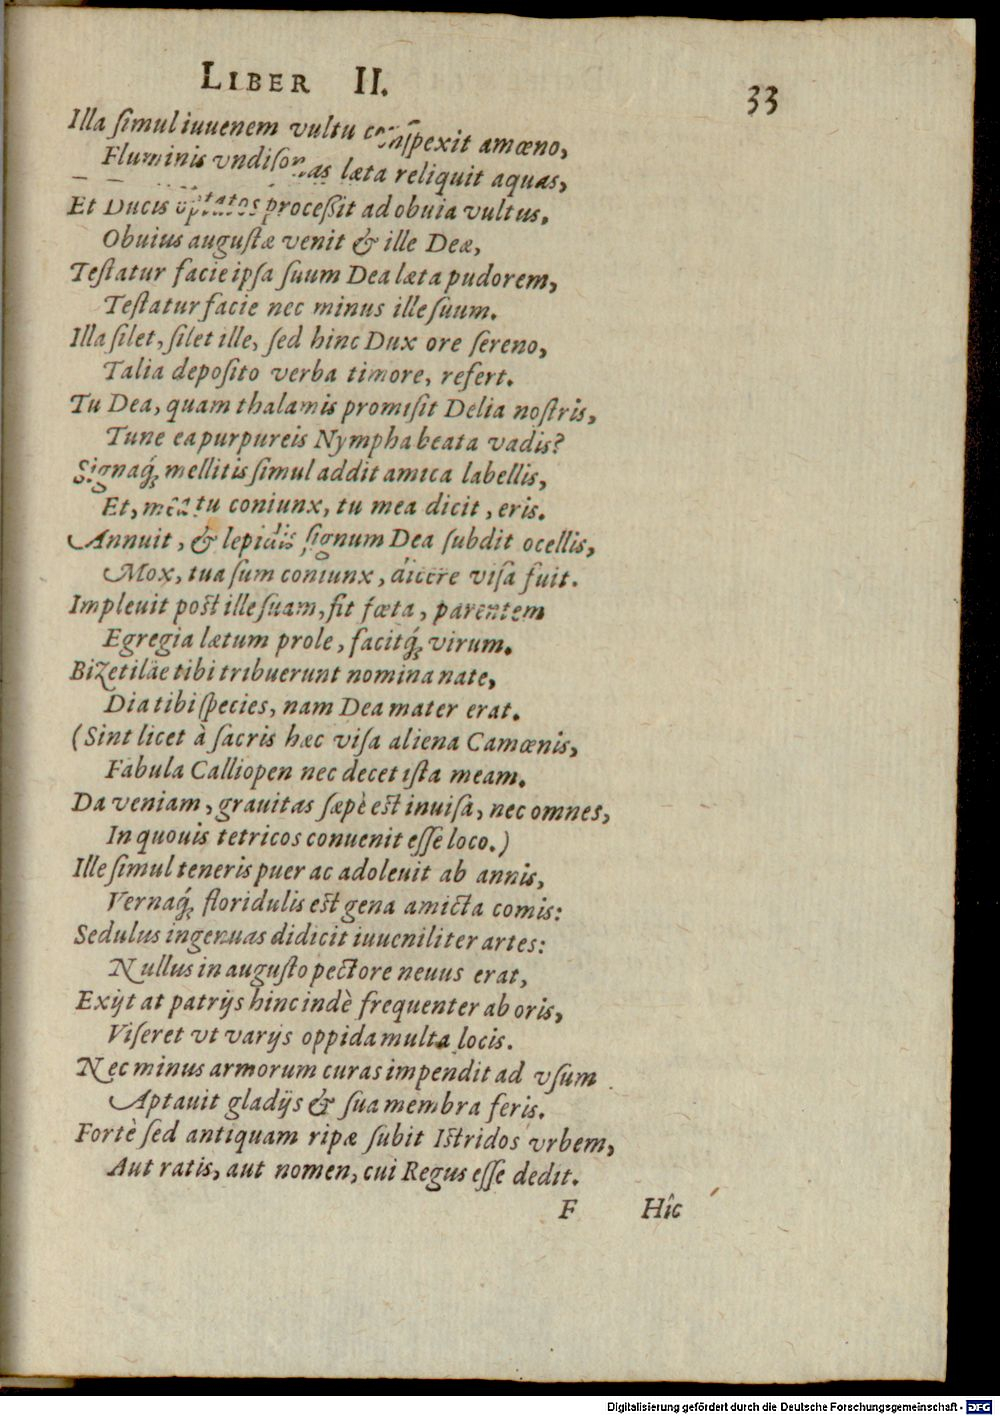 LIBER II.
33
Illa ſimul iuuenem vultu conſpexit amœno,
Fluminis vndiſonas læta reliquit aquas,
Et Ducis optatos proceßit ad obuia vultus,
Obuius auguſtæ venit & ille Deæ,
Teſtatur facie ipſa ſuum Dea læta pudorem,
Teſtatur facie nec minus ille ſuum.
Illa ſilet, ſilet ille, ſed hinc Dux ore ſereno,
Talia depoſito verba timore, refert.
Tu Dea, quam thalamis promiſit Delia noſtris,
Tune ea purpureis Nympha beata vadis?
Signaq́; mellitis ſimul addit amica labellis,
Et, mea tu coniunx, tu mea dicit, eris.
Annuit, & lepidis ſignum Dea ſubdit ocellis,
Mox, tua ſum coniunx, dicere viſa fuit.
Impleuit poſt ille ſuam, fit fœta, parentem
Egregia lætum prole, facitq́; virum.
Bizetilae tibi tribuerunt nomina nate,
Dia tibi ſpecies, nam Dea mater erat.
(Sint licet à ſacris hæc viſa aliena Camœnis,
Fabula Calliopen nec decet iſta meam.
Da veniam, grauitas ſæpè eſt inuiſa, nec omnes,
In quouis tetricos conuenit eſſe loco.)
Ille ſimul teneris puer ac adoleuit ab annis,
Vernaq́; floridulis eſt gena amicta comis:
Sedulus ingenuas didicit iuueniliter artes:
Nullus in auguſto pectore neuus erat,
Exijt at patrijs hinc indè frequenter ab oris,
Viſeret vt varijs oppida multa locis.
Nec minus armorum curas impendit ad vſum
Aptauit gladijs & ſua membra feris.
Fortè ſed antiquam ripæ ſubit Iſtridos vrbem,
Aut ratis, aut nomen, cui Regus eſſe dedit.
F
Hîc
Digitalisierung gefördert durch die Deutsche Forschungsgemeinschaft - DFG